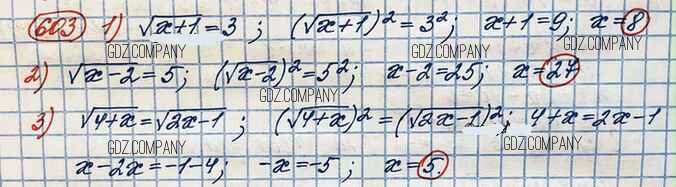 603 1) √x+1 = 3 ; (√x+1)² = 3² ; x+1 = 9; x = 8
GDZ.COMPANY GDZ.COMPANY
2) √x-2 = 5; (√x-2)² = 5²; x-2 = 25; x = 27
GDZ.COMPANY
3) √4+x = √2x-1 ; (√4+x)² = (√2x-1)²; 4+x = 2x-1
GDZ.COMPANY GDZ.COMPANY
x-2x = -1-4; -x = -5; x = 5.